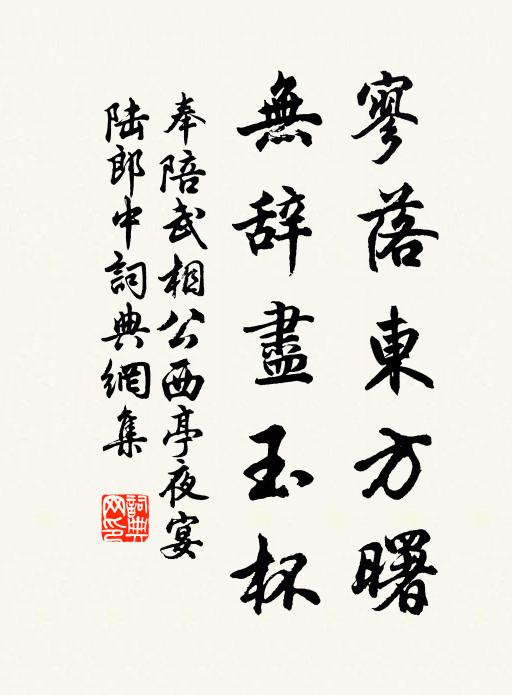 寥落東方曙
無辞盡玉杯
奉陪武相公西亭夜宴
陆郎中詞典網集
詞典网印